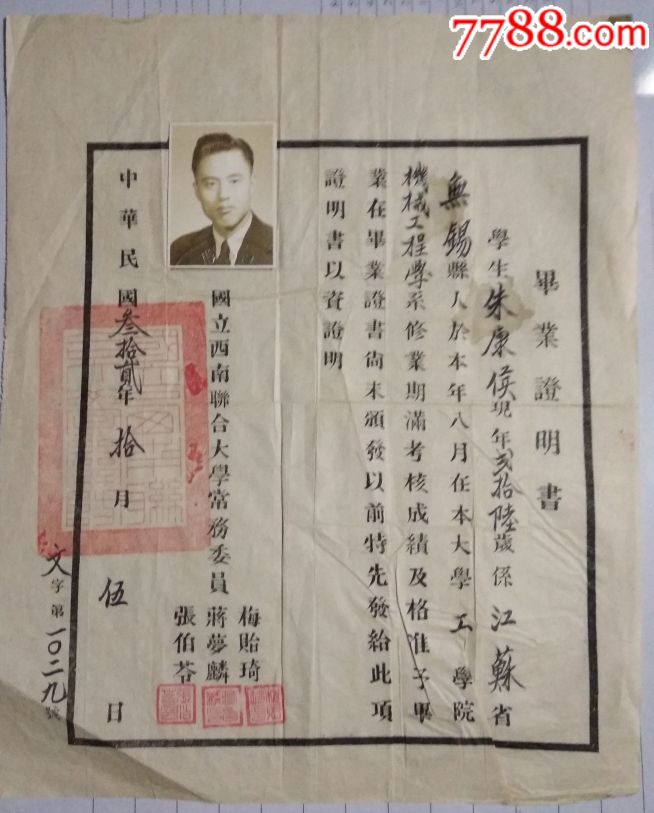 7788.com
畢業證明書
學生朱康侯現年弍拾陸歲係江蘇省
無錫縣人於本年八月在本大學工學院
機械工程學系修業期滿考核成績及格准予畢
業在畢業證書尚未頒發以前特先發給此項
證明書以資證明
國立西南聯合大學常務委員
梅貽琦
蔣夢麟
張伯苓
中華民國叁拾貳年拾月伍日
文字第一〇二九號